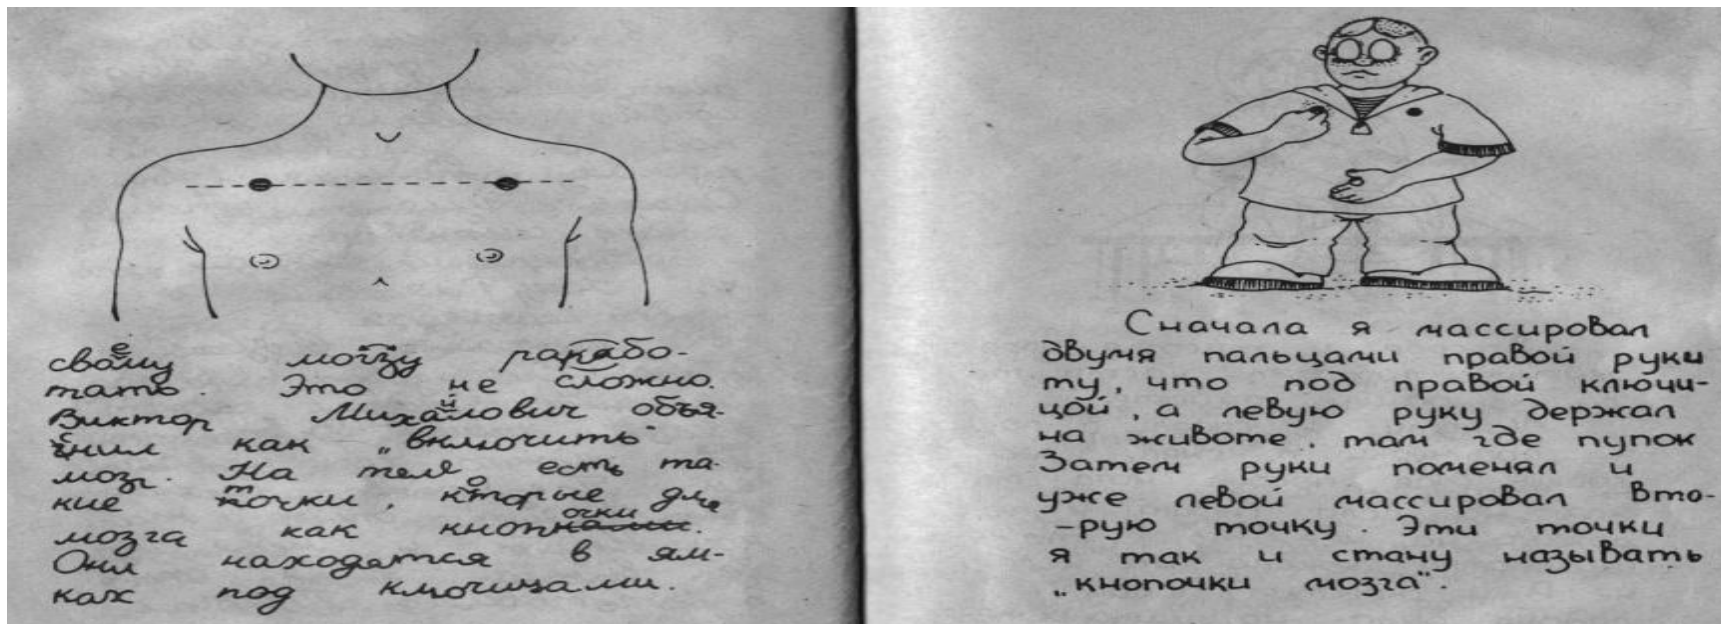 сваму могзу ракабо-
тать. Это не сложно.
Виктор Михайлович объя-
снил как „включить"
мозг. На теле есть та-
кие точки, которые для
мозга как кнопочки.
Они находятся в ям-
ках под ключицами.
Сначала я массировал
двумя пальцами правой руки
ту, что под правой ключи-
цой, а левую руку держал
на животе, там где пупок
Затем руки поменял и
уже левой массировал вто-
-рую точку. Эти точки
я так и стану называть
„кнопочки мозга".